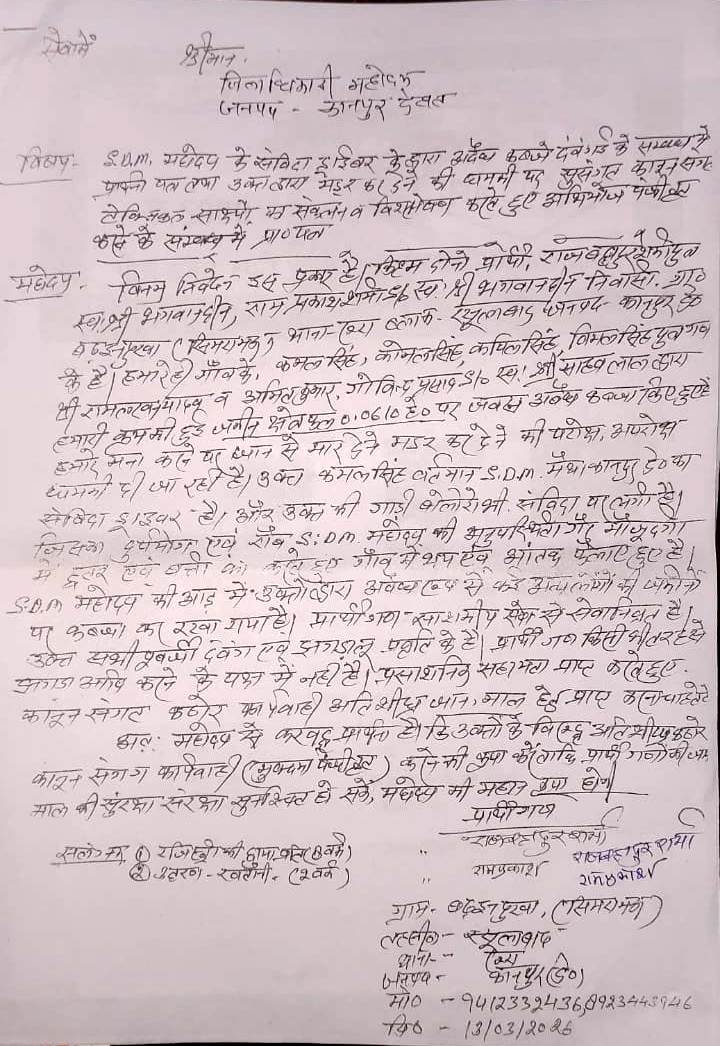 सेवामें
श्रीमान,
जिलाधिकारी महोदय
जनपद - कानपुर देहात
विषय- S.D.M. महोदय के संविदा ड्राईवर के द्वारा अवैध कब्जे दबंगई के सम्बन्ध में
प्रार्थना पत्र तथा उक्त द्वारा मर्डर कर देने की धमकी पर सुसंगत कानून संगत
साक्ष्यों का संकलन व विश्लेषण करते हुए अभियोग पंजीकृत
करने के संबन्ध में प्रा०पत्र
महोदय, विनम्र निवेदन इस प्रकार है। कि हम दोनो प्रार्थी, राजबहादुर शर्मा पुत्र
स्व० श्री भगवानदीन, राम प्रकाश शर्मा S/o स्व० श्री भगवानदीन निवासी- ग्राम
(सिमरामऊ) थाना- ब्लाक- रसूलाबाद जनपद- कानपुर दे०
के है। हमारे ही गाँव के, कमल सिंह, कोमल सिंह, कपिल सिंह, विमल सिंह पुत्र गण
श्री व अमित कुमार, गोविन्द प्रसाद S/o स्व० श्री साहब लाल द्वारा
हमारी क्रय की हुई जमीन क्षेत्रफल 0.0610 हे० पर जबरन अवैध कब्जा किए हुए है
हमारे मना करने पर जान से मार देने मर्डर कर देने की परोक्ष, अपरोक्ष
धमकी दी जा रही है। उक्त कमल सिंह वर्तमान S.D.M. मैथा कानपुर दे० का
संविदा ड्राइवर है। और उक्त की गाड़ी बोलोरो भी संविदा पर लगी है।
जिसका दुर्पयोग एवं रौब S.D.M. महोदय की अनुपस्थिती गैर मौजूदगी
में हूटर एवं बत्ती का करते हुए गाँव में भय एवं आतंक फैलाए हुए है।
S.D.M महोदय की आड़ में उक्तो द्वारा अवैध रूप से कई अन्य लोगों की जमीनों
पर कब्जा कर रखा गया है। प्रार्थीगण सेवा से सेवानिवृत है।
उक्त सभी दबंग एवं झगडालू प्रवृति के है। प्रार्थी गण किसी भी तरह से
झगडा आदि करने के पक्ष में नहीं है। प्रसाशनिक सहायता प्राप्त करते हुए
कानून संगत कठोर कार्यवाही अतिशीघ्र जान, माल हेतु प्राप्त करना चाहते है
अतः महोदय से करबद्ध प्रार्थना है। कि उक्तों के विरूद्ध अतिशीघ्र कठोर
कानून संगत कार्यवाही (मुकदमा पंजीकृत) करने की कृपा करें ताकि प्रार्थी गणो की जान
माल की सुरक्षा संरक्षा सुनिश्चित हो सके, महोदय की महान कृपा होगी
प्रार्थीगण
संलग्नक ① रजिस्ट्री की छाया प्रति
② उद्धरण - खतौनी -
राजबहादुर शर्मा राजबहादुर शर्मा
रामप्रकाश रामप्रकाश
ग्राम- (सिमरामऊ)
तहसील- रसूलाबाद
थाना-
जनपद- कानपुर (दे०)
मो० - 9412332436,
दि० - 13/03/2026